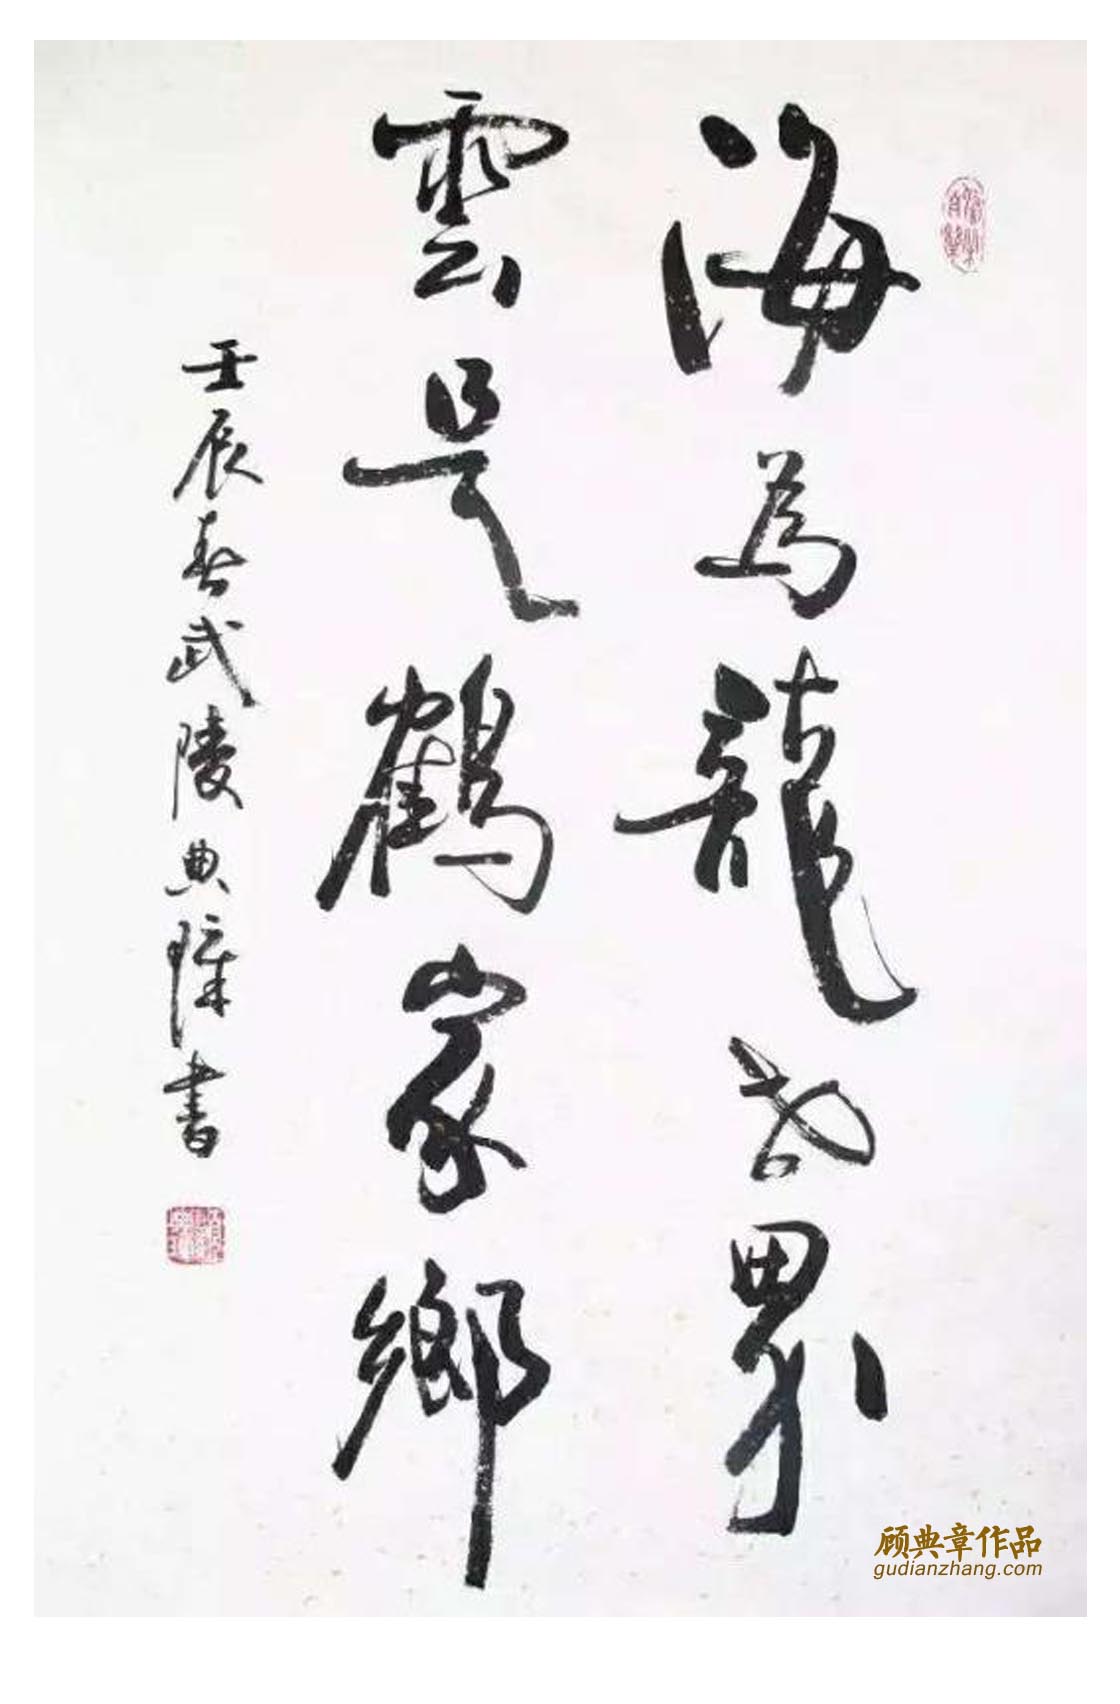 海為龍世界
雲是鶴家鄉
壬辰春武陵典璋書
顾典章作品
gudianzhang.com